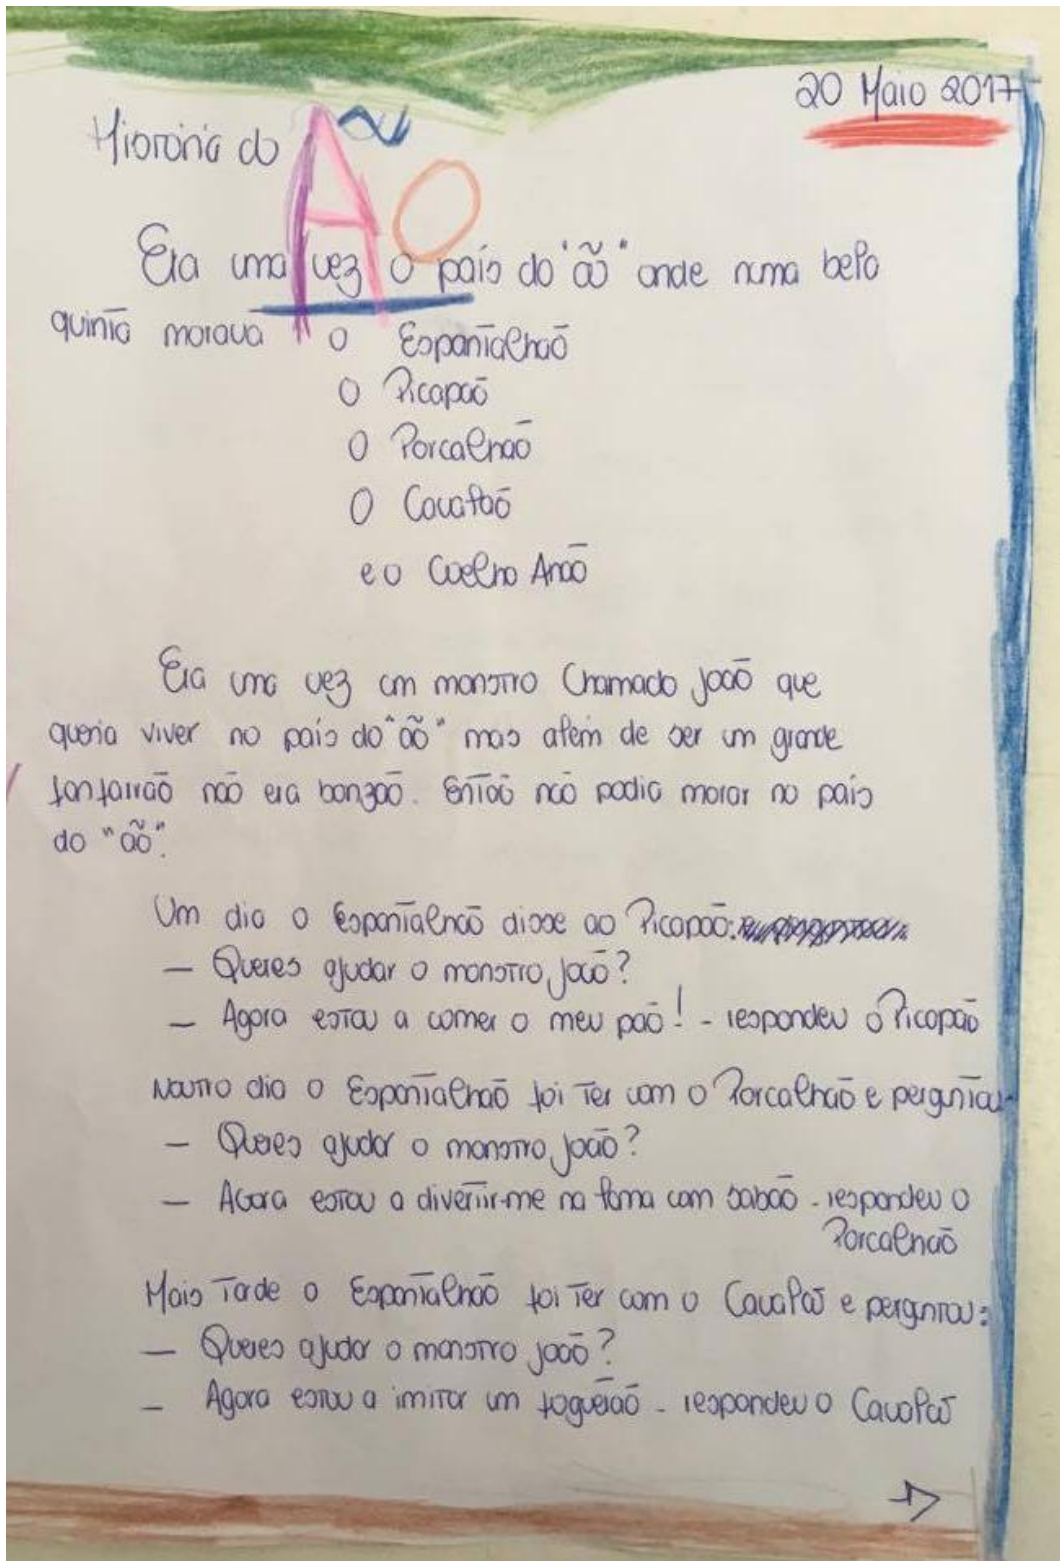 20 Maio 2017
História do ÃO
Era uma vez o país do "ão" onde numa bela
quinta morava o Espantalhão
o Picapão
o Porcalhão
o Cavalão
e o Coelho Anão
Era uma vez um monstro Chamado João que
queria viver no país do "ão" mas além de ser um grande
fanfarrão não era bonzão. Então não podia morar no país
do "ão".
Um dia o Espantalhão disse ao Picapão:
— Queres ajudar o monstro João?
— Agora estou a comer o meu pão! - respondeu o Picapão
Noutro dia o Espantalhão foi ter com o Porcalhão e perguntou
— Queres ajudar o monstro João?
— Agora estou a divertir-me na lama com sabão - respondeu o
Porcalhão
Mais tarde o Espantalhão foi ter com o Cavalão e perguntou:
— Queres ajudar o monstro João?
— Agora estou a imitar um foguetão - respondeu o Cavalão